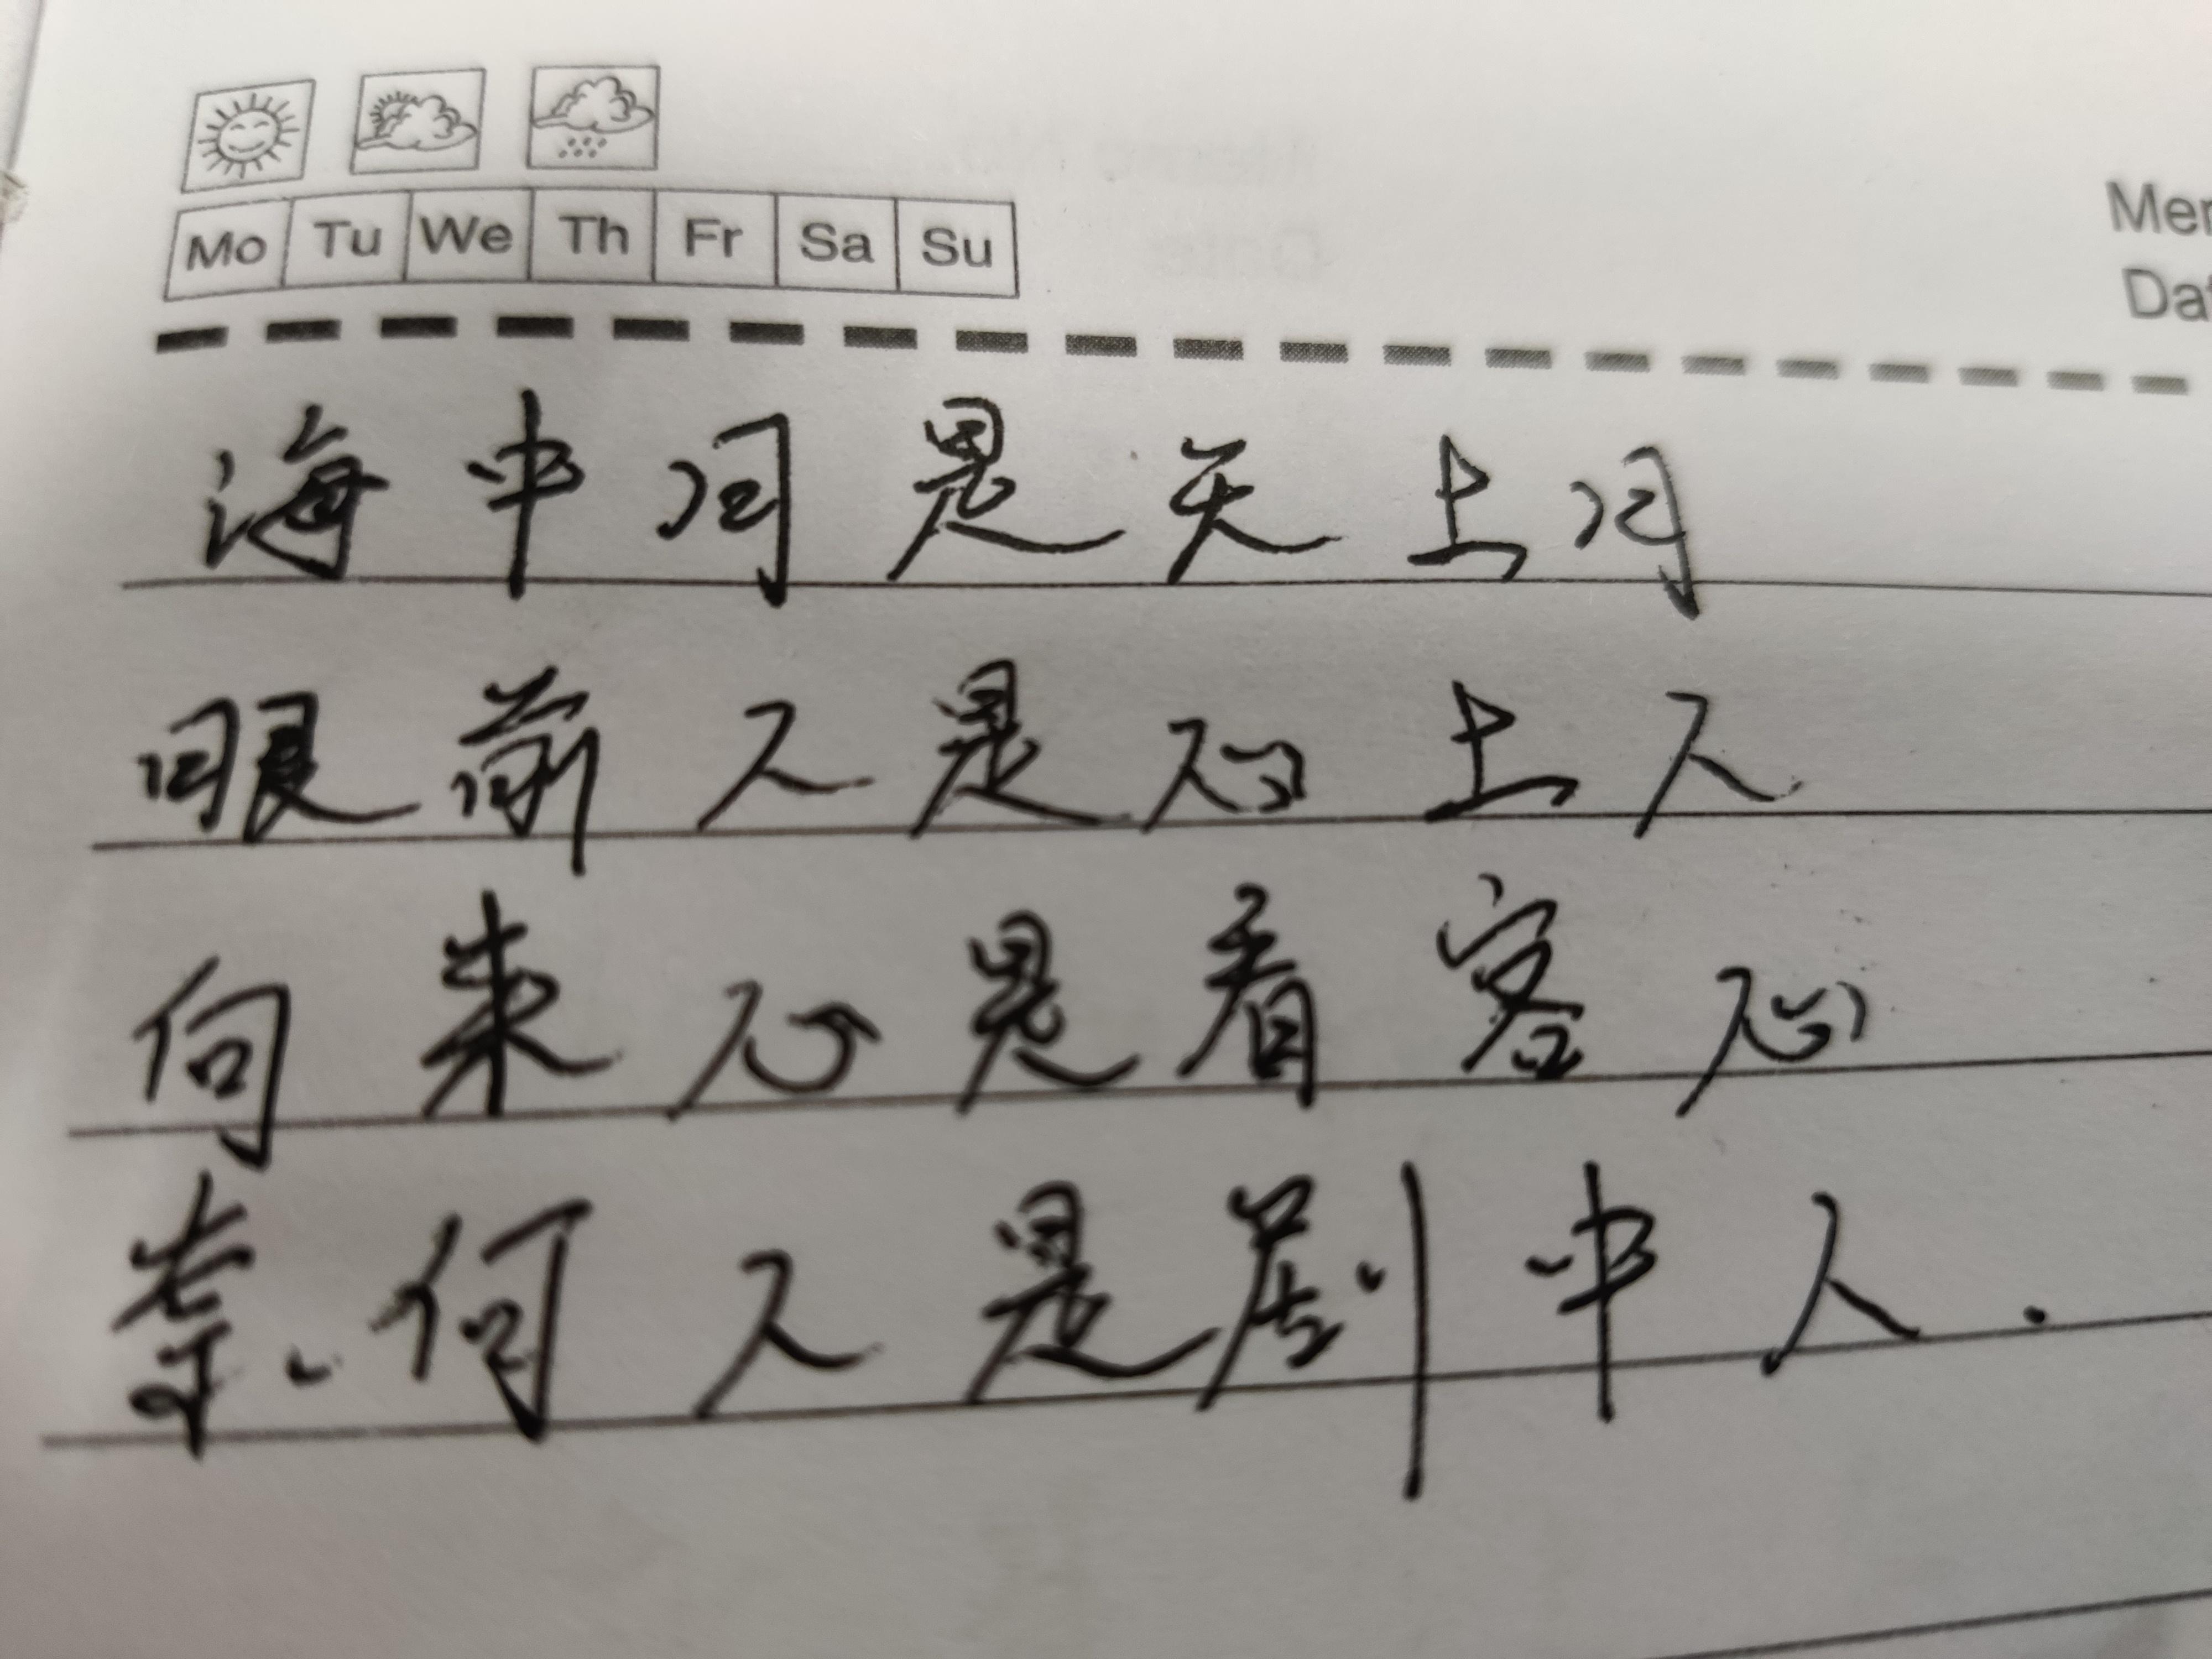 Mo Tu We Th Fr Sa Su
海中月是天上月
眼前人是心上人
向来心是看客心
奈何人是剧中人.